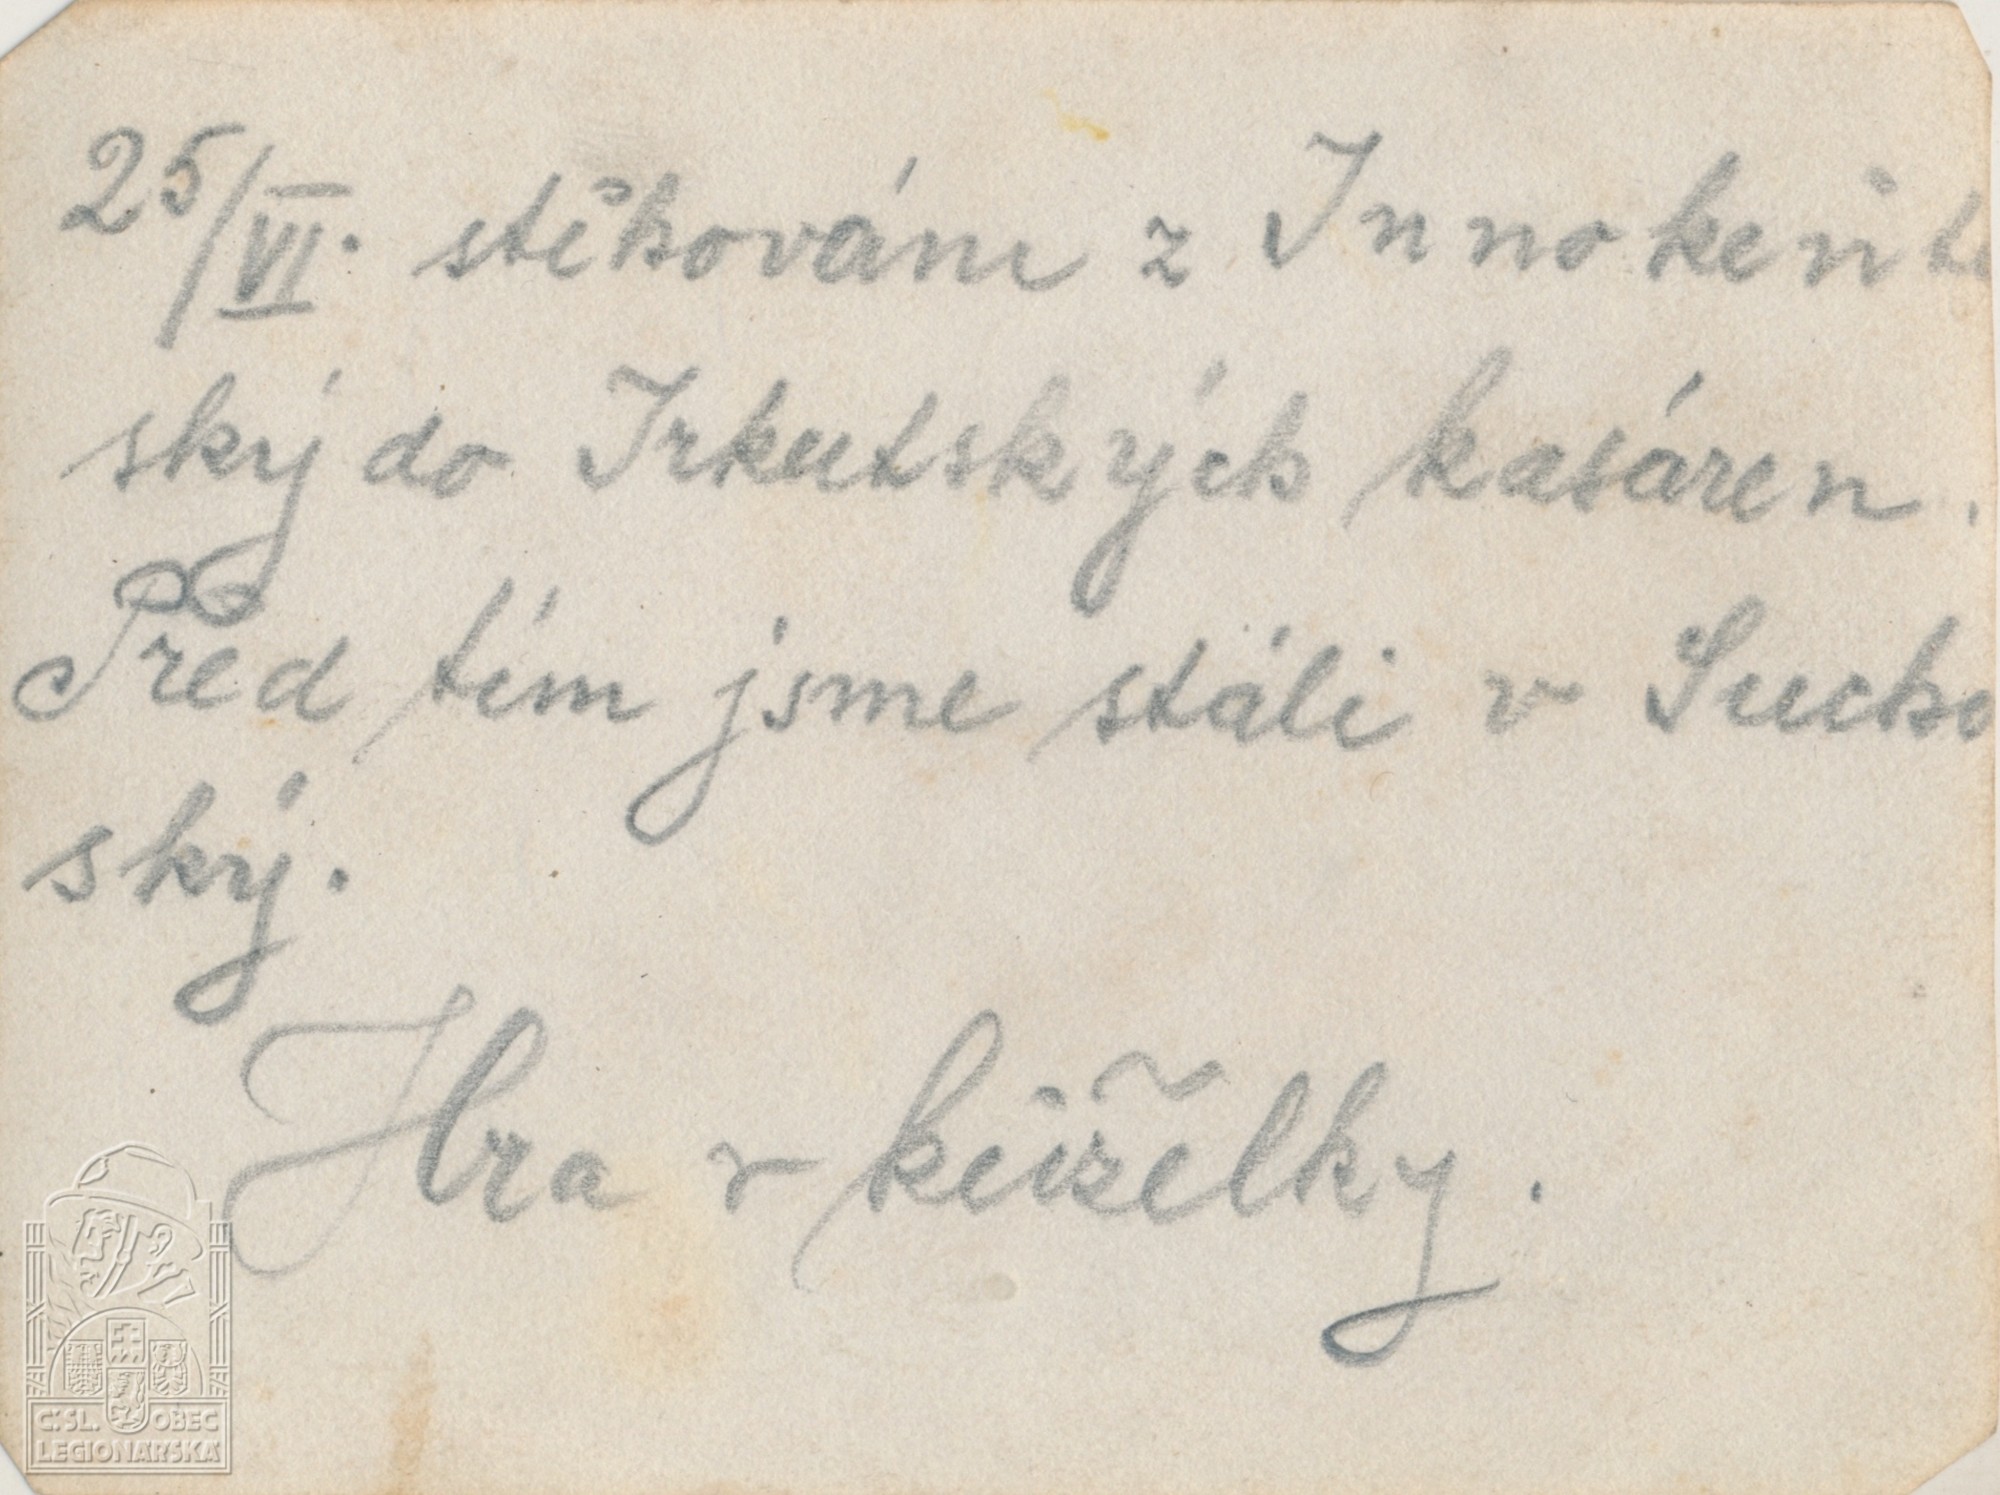 25/VI. stěhování z Innokente
ský do Irkutských kasáren.
Před tím jsme stáli v Sucho
ský.
Hra v kuižělky.
Č. SL. OBEC
LEGIONÁŘSKÁ